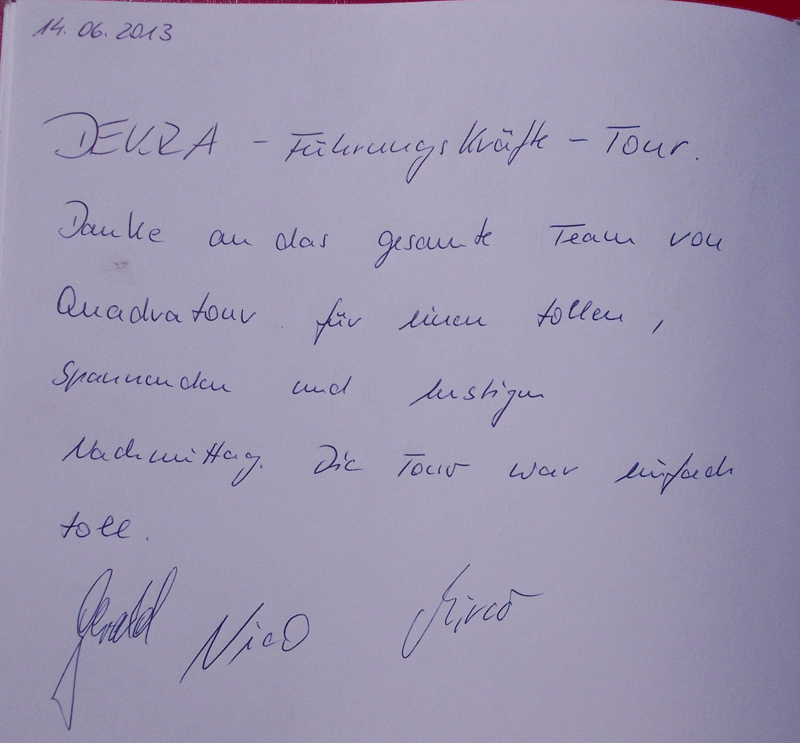 14. 06. 2013
DEKRA - Führungskräfte - Tour.
Danke an das gesamte Team von
Quadratour für einen tollen,
spannenden und lustigen
Nachmittag. Die Tour war einfach
toll.
Gerald Nico Mirco